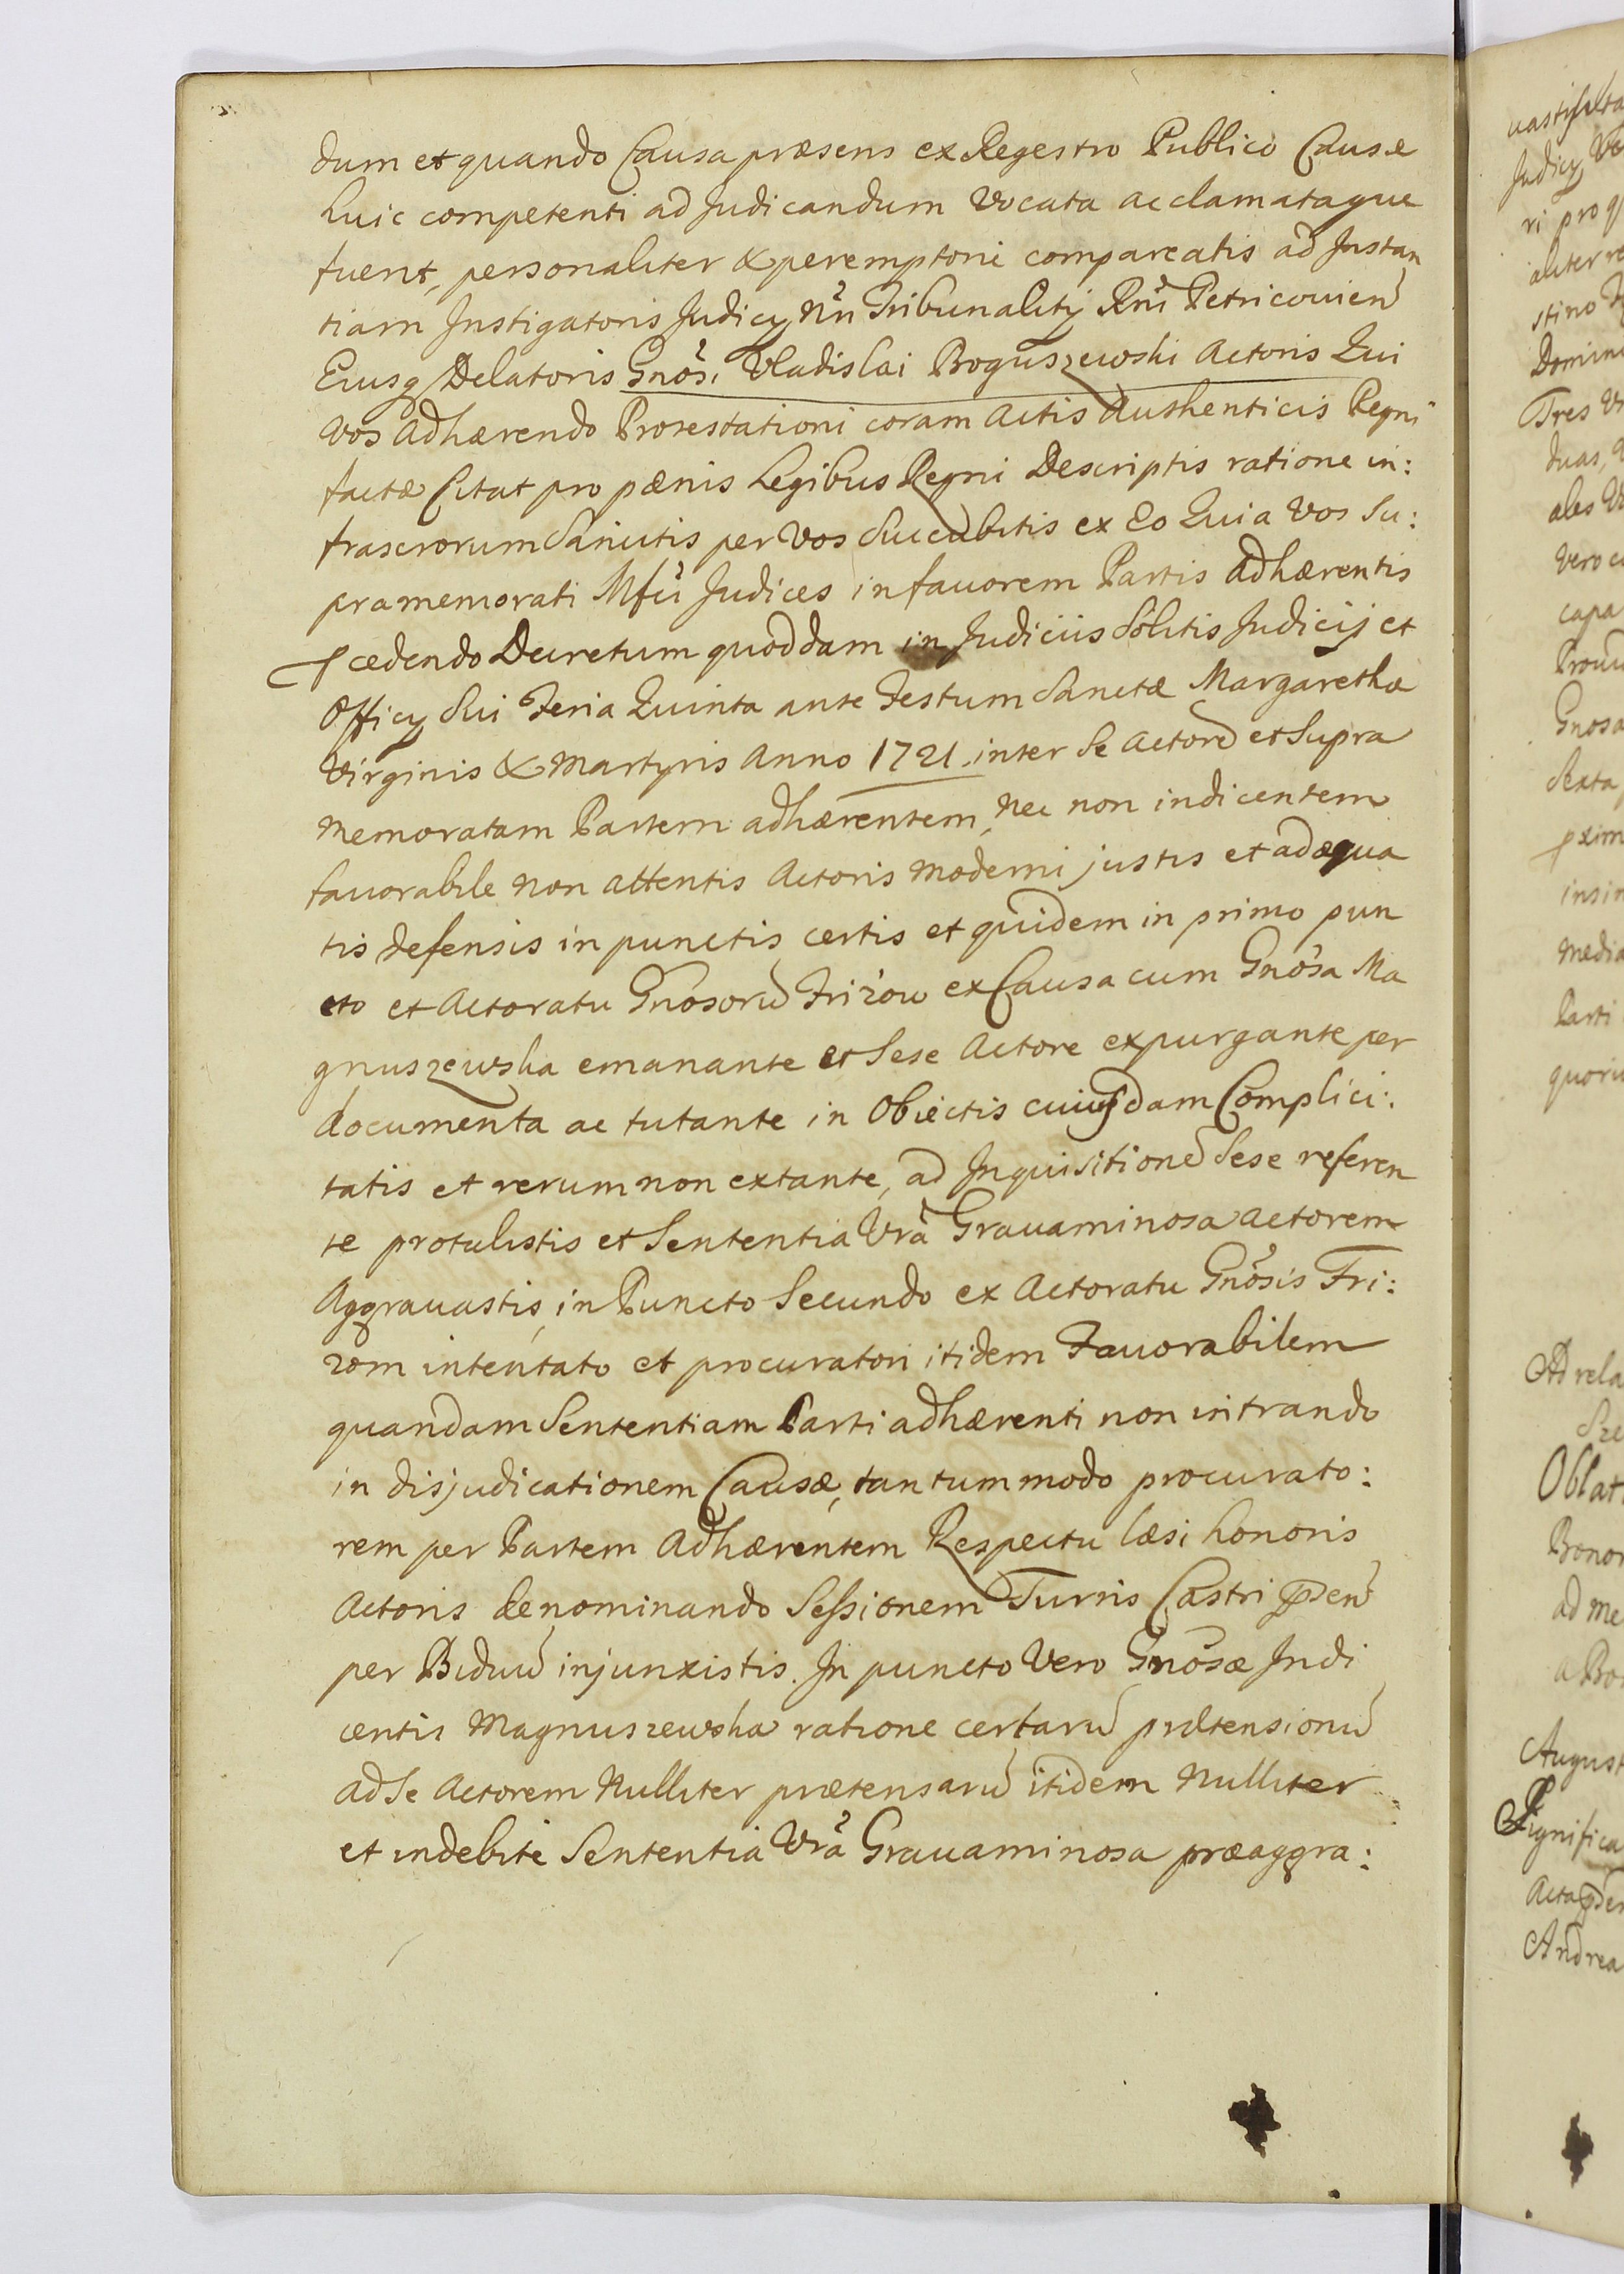 dum et quando Causa præsens ex Regestro Publico Causæ
huic competenti ad Judicandum Vocata acclamataque
fuerit, personaliter & peremptorie compareatis ad Instan
tiam Instigatoris Judicy Nri Tribunality Rni Petricouien
Eiusq Delatoris Gnosi Vladislai Boguszewski Actoris Qui
Vos Adhærendo Protestationi coram Actis Authenticis Regni
factæ Citat pro pænis Legibus Regni Descriptis ratione in:
frascrorum Sancitis per Vos Succubitis ex Eo Quia Vos Su:
pramemorati Mfci Judices in fauorem Partis adhærentis
pcedendo Decretum quoddam in Judiciis Solitis Judicij et
Officy Sui Feria Quinta ante Festum Sanctæ Margarethæ
Virginis & Martyris Anno 1721. inter Se Actore et Supra
memoratam Partem adhærentem, nec non indicentem
fauorabile non attentis Actoris moderni justis et adæqua
tis defensis in punctis certis et quidem in primo pun
cto et Actoratu Gnosoru Frizow ex Causa cum Gnosa Ma
gnuszewska emanante et Sese Actore expurgante per
documenta ac tutante in Obiectis cuiusdam Complici:
tatis et rerum non extante, ad Inquisitione Sese referen
te protulistis et Sententia Vra Grauaminosa Actorem
Aggrauastis, in Puncto Secundo ex Actoratu Gnosis Fri:
zom intentato et procuratori itidem Fauorabilem
quandam Sententiam Parti adhærenti non intrando
in disjudicationem Causæ, tantummodo procurato:
rem per Partem Adhærentem Respectu læsi honoris
Actoris denominando Sessionem Turris Castri pden
per Biduu injunxistis. In puncto Vero Gnosæ Indi
centis Magnuszewska ratione certaru prætensionu
ad se Actorem Nulliter prætensaru itidem Nulliter
et indebite Sententia Vra Grauaminosa præaggra: